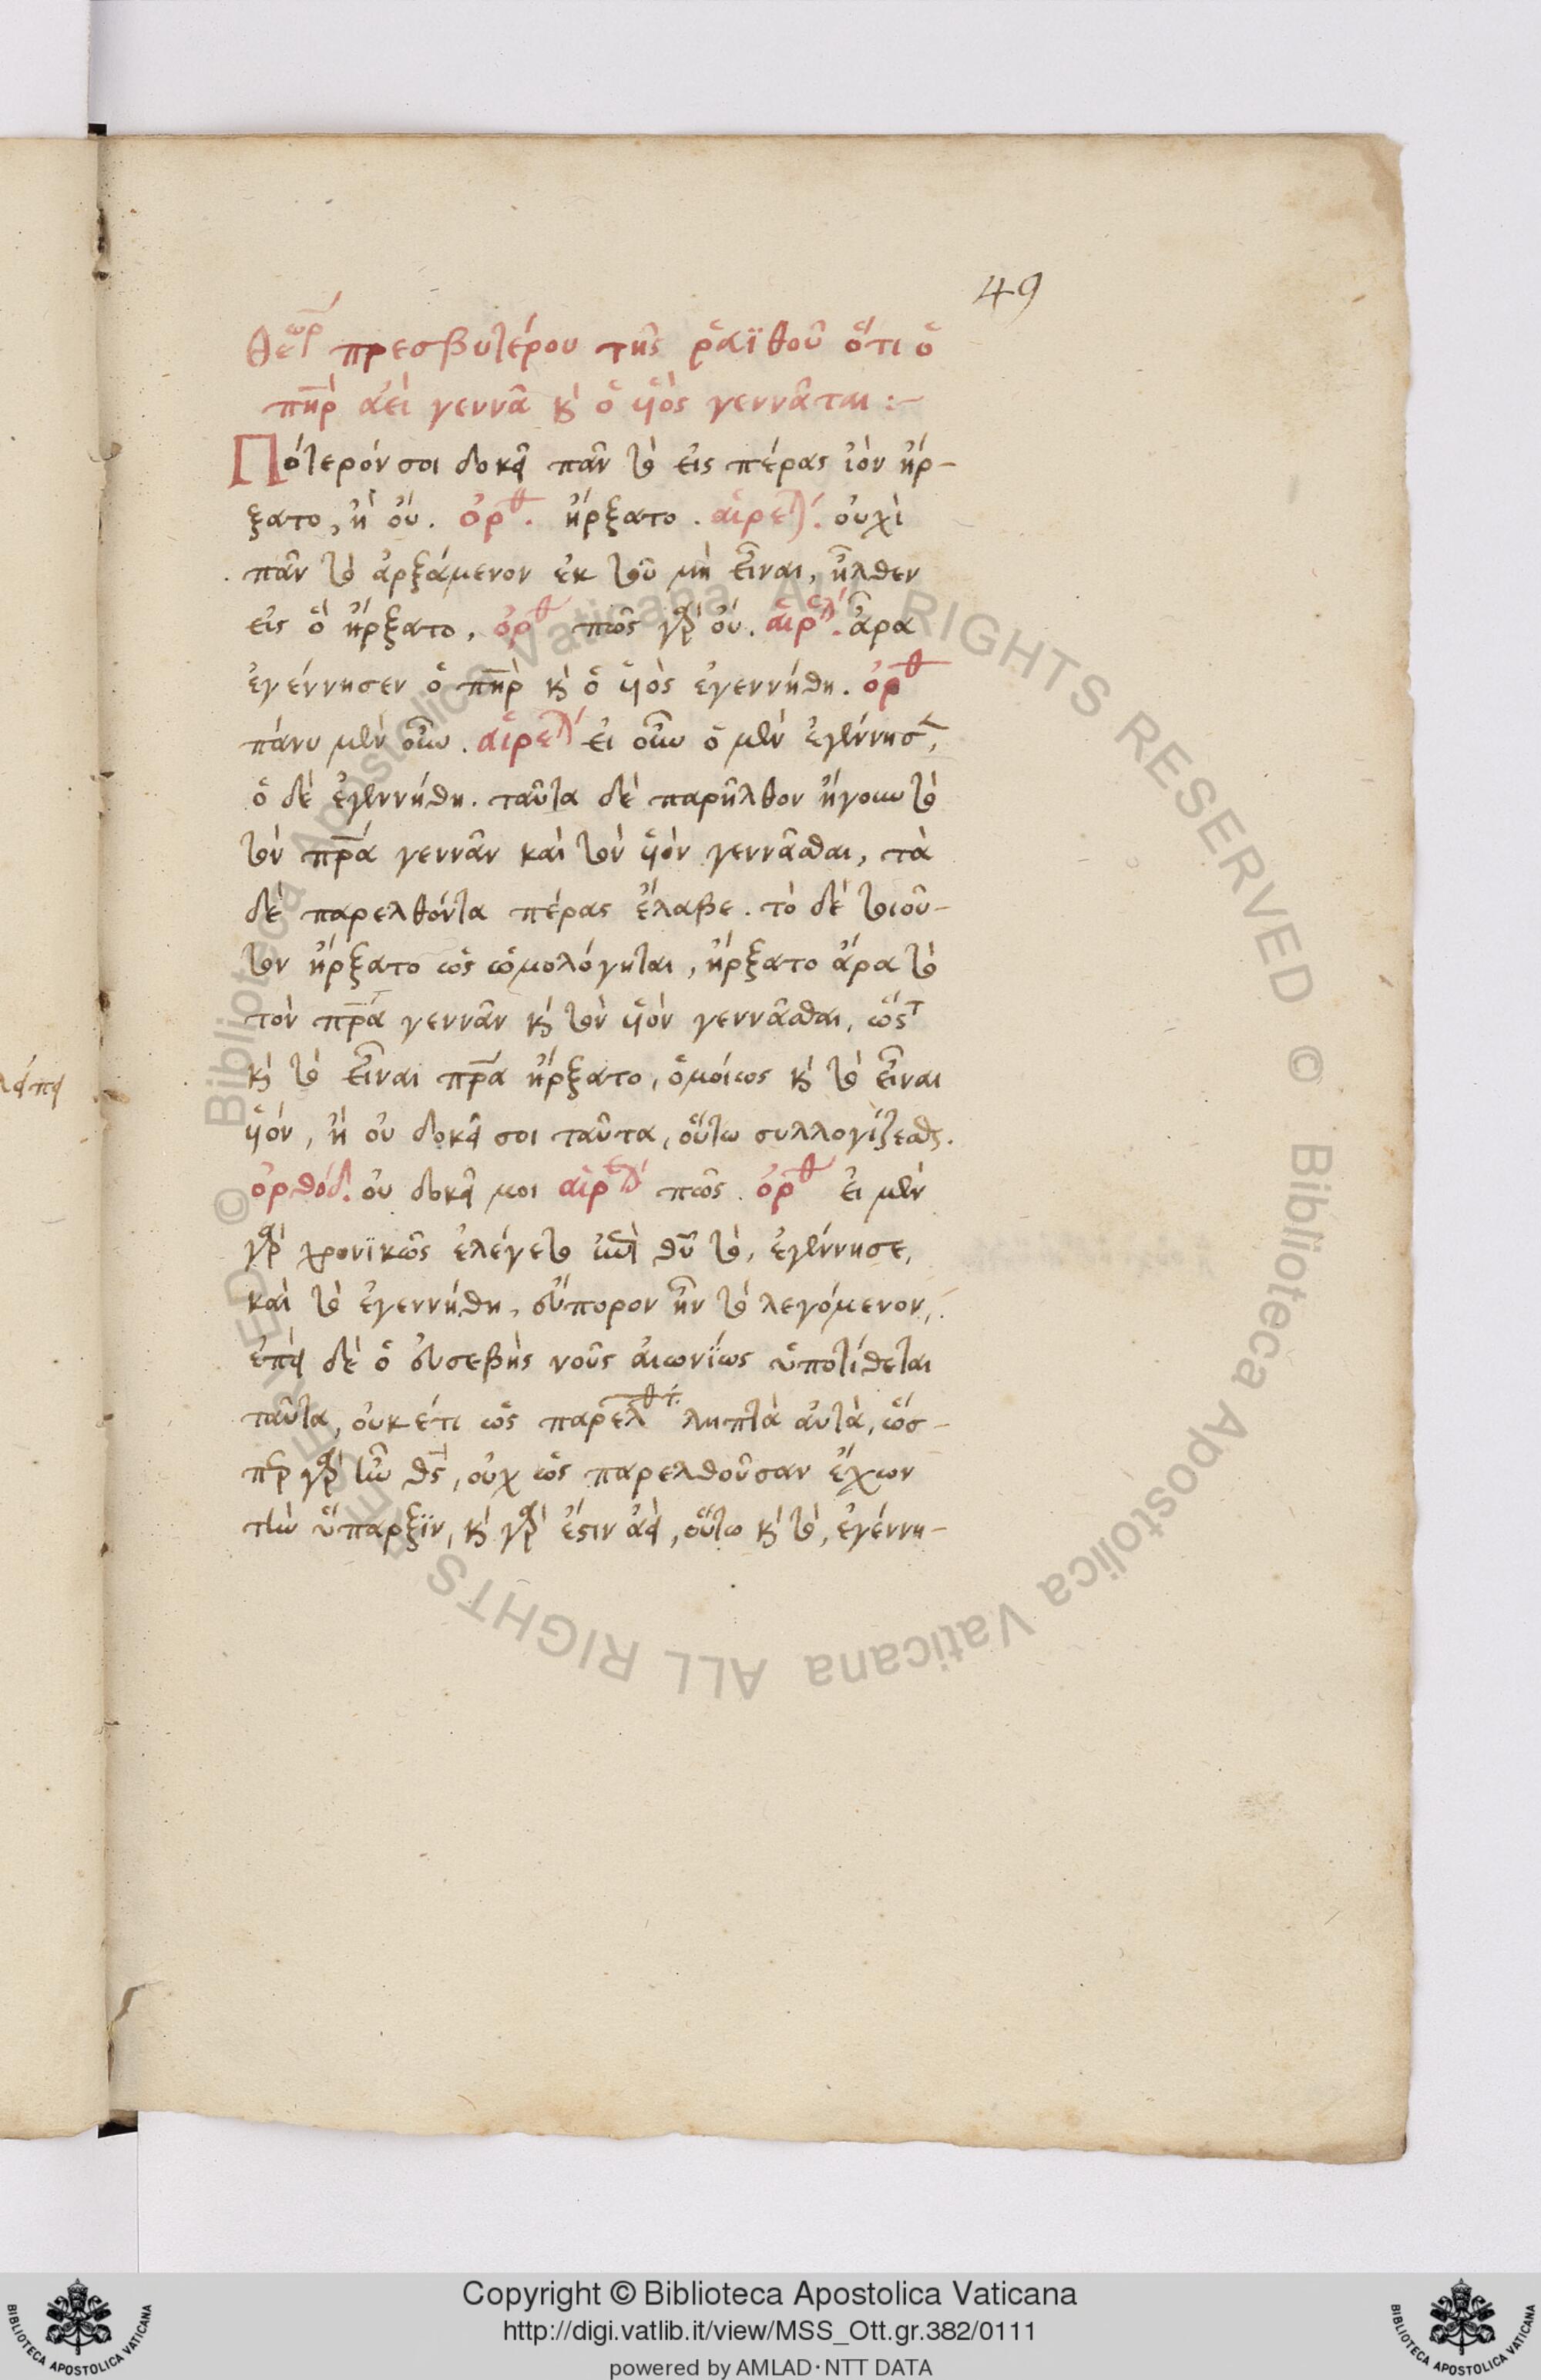 49
Θεωρ πρεσβυτέρου τῆς ῥαϊθοῦ ὅτι ὁ
πηρ ἀεὶ γεννᾶ κ ὁ υἱὸς γεννᾶται :—
Πότερόν σοι δοκεῖ πᾶν τὸ εἰς πέρας ἰὸν ἤρ-
ξατο, ἢ οὔ. ὀρθ. ἤρξατο. αἱρετ. οὐχὶ
πᾶν τὸ ἀρξάμενον ἐκ τοῦ μὴ εἶναι, ἦλθεν
εἰς ὃ ἤρξατο, ὀρθ πῶς γὰρ οὔ. αἱρετ. ἆρα
ἐγέννησεν ὁ πηρ κ ὁ υἱὸς ἐγεννήθη. ὀρθ
πάνυ μὲν οὖν. αἱρετ εἰ οὖν ὁ μὲν ἐγέννησ,
ὁ δὲ ἐγεννήθη. ταῦτα δὲ παρῆλθον ἤγουν τὸ
τὸν πρα γεννᾶν καὶ τὸν υἱὸν γεννᾶσθαι, τὰ
δὲ παρελθόντα πέρας ἔλαβε. τὸ δὲ τοιοῦ-
τον ἤρξατο ὡς ὡμολόγηται, ἤρξατο ἄρα τὸ
τὸν πρα γεννᾶν κ τὸν υἱὸν γεννᾶσθαι, ὥστ
κ τὸ εἶναι πρα ἤρξατο, ὁμοίως κ τὸ εἶναι
υἱόν, ἢ οὐ δοκεῖ σοι ταῦτα, οὕτω συλλογίζεσθ.
ὀρθόδ. οὐ δοκεῖ μοι αἱρετ πῶς. ὀρθ εἰ μὲν
γὰρ χρονϊκῶς ἐλέγετο ἐπὶ θυ τὸ, ἐγέννησε,
καὶ τὸ ἐγεννήθη, εὔπορον ἦν τὸ λεγόμενον,
ἐπεὶ δὲ ὁ εὐσεβὴς νοῦς αἰωνΐως ὑποτίθεται
ταῦτα, οὐκέτι ὡς παρελθτ. ληπτὰ αὐτὰ, ὥσ-
πρ γὰρ ὢν θς, οὐχ ὡς παρελθοῦσαν ἔχων
τὴν ὕπαρξϊν, κ γὰρ ἔστιν ἀεὶ, οὕτω κ τὸ, ἐγέννη-
Copyright © Biblioteca Apostolica Vaticana
http://digi.vatlib.it/view/MSS_Ott.gr.382/0111
powered by AMLAD·NTT DATA